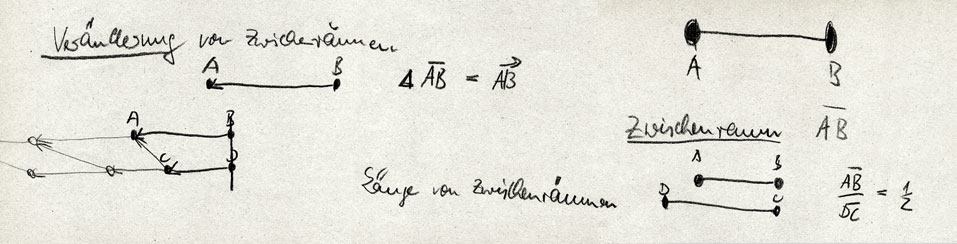 Veränderung von Zwischenräumen
A B
Δ A̅B̅ = A⃗B⃗
A B
A B
C D
Zwischenraum A̅B̅
Länge von Zwischenräumen
A B
D C
A̅B̅ / D̅C̅ = 1/2